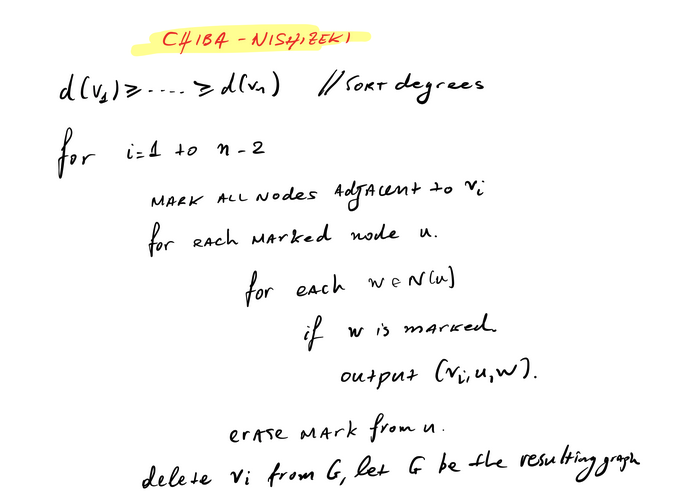 CHIBA - NISHIZEKI
d(v₁) ≥ .... ≥ d(vₙ) // SORT degrees
for i=1 to n-2
MARK ALL NODES ADJACENT to vᵢ
for EACH MARKED node u.
for EACH w ∈ N(u)
if w is MARKED
output (vᵢ, u, w).
ERASE MARK from u.
delete vᵢ from G, let G be the resulting graph